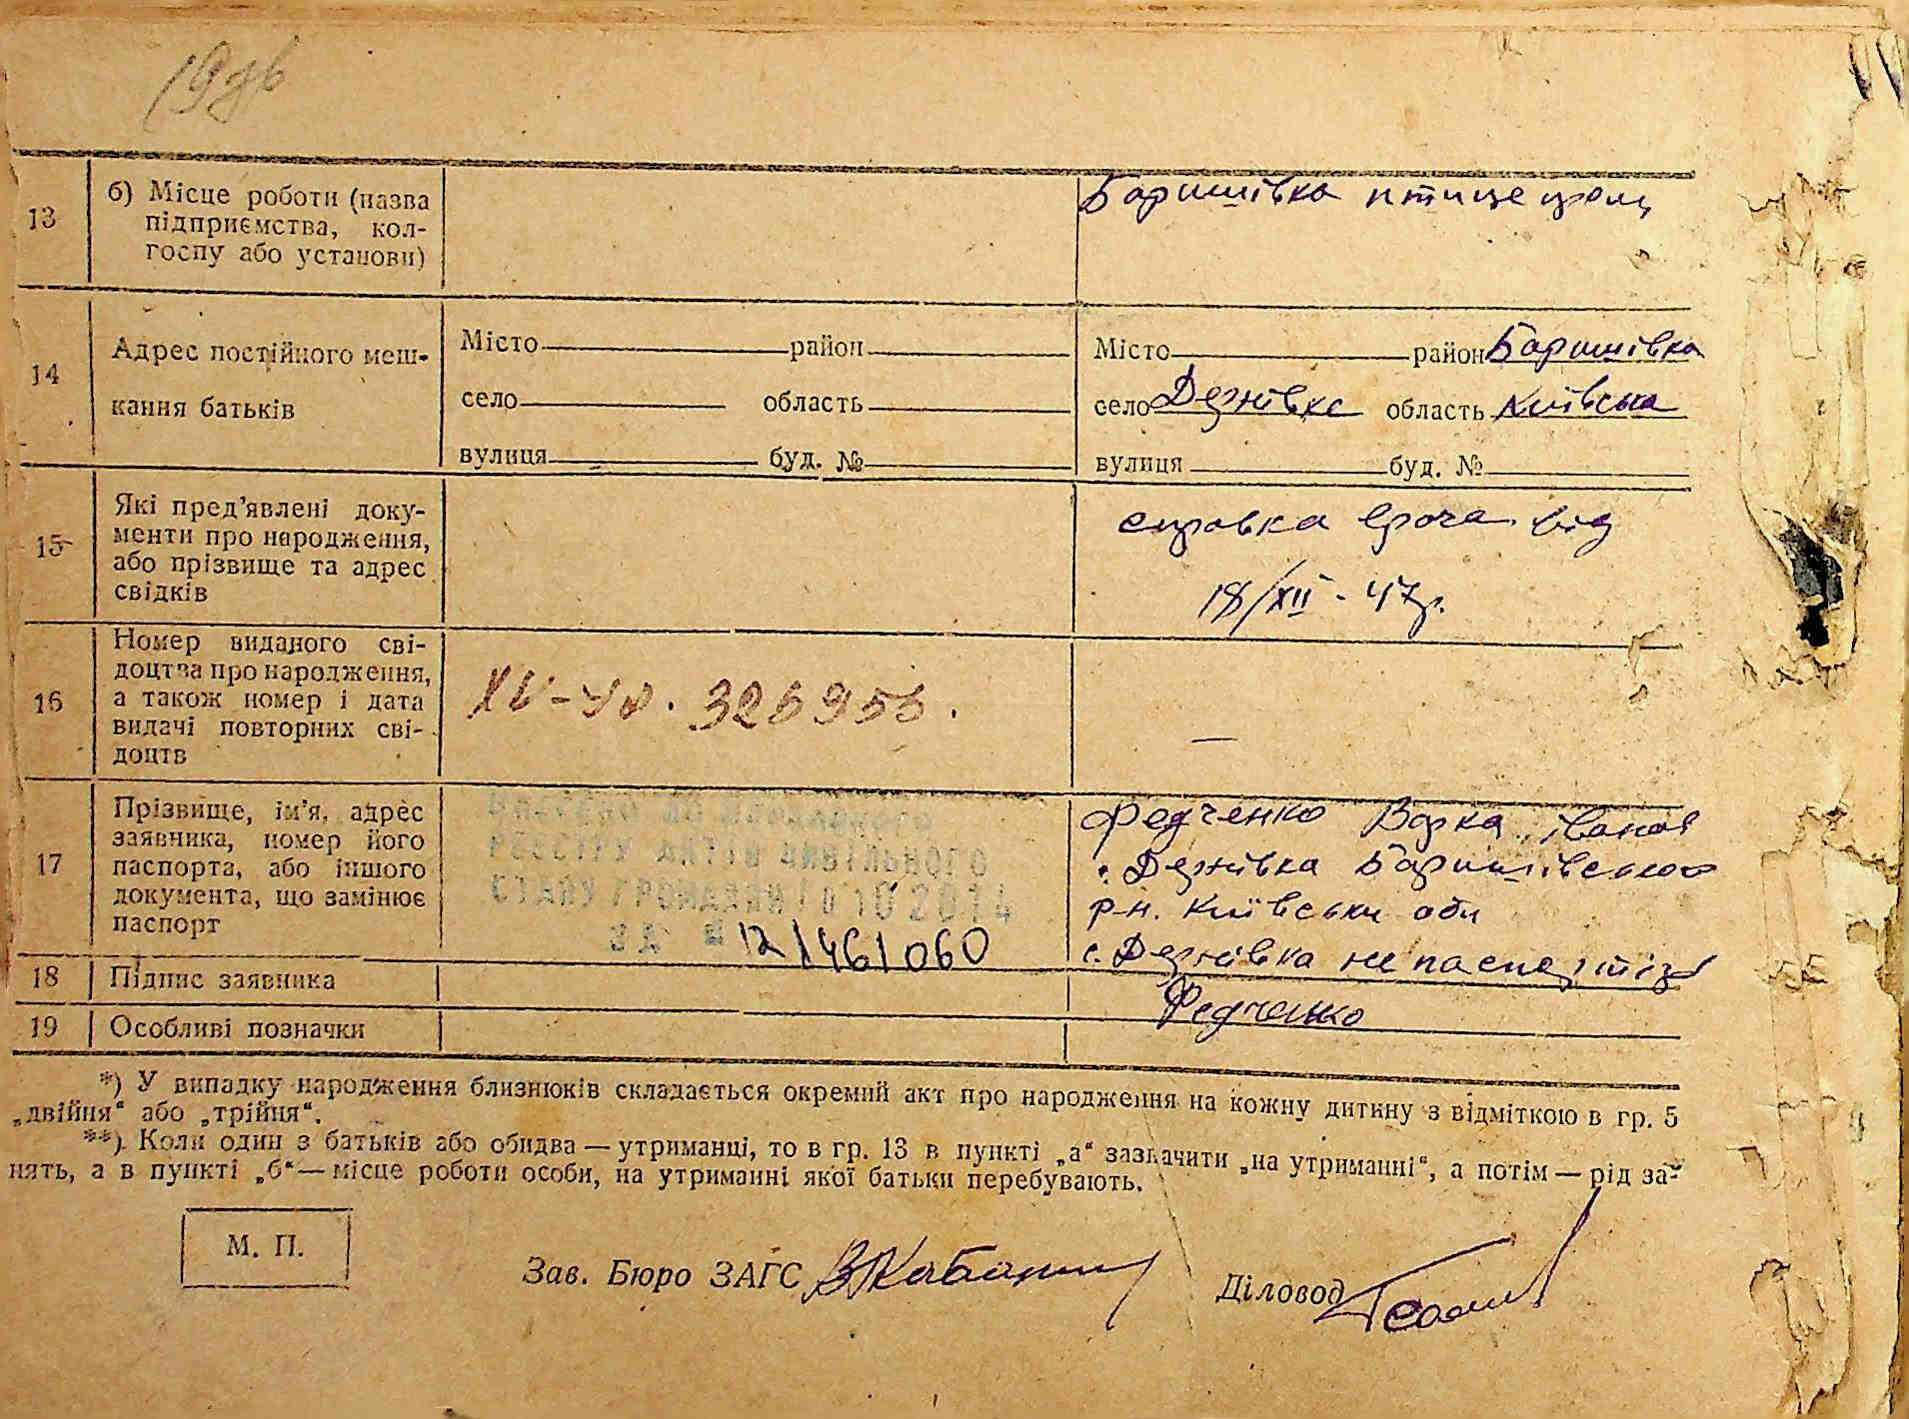 19зв
13
б) Місце роботи (назва
підприємства, кол-
госпу або установи)
Баришівка птице пром
14
Адрес постійного меш-
кання батьків
Місто район
село область
вулиця буд. №
Місто район Баришівка
село Дернівка область Київська
вулиця буд. №
15
Які пред'явлені доку-
менти про народження,
або прізвище та адрес
свідків
справка врача від
18/XII - 47р.
16
Номер виданого сві-
доцтва про народження,
а також номер і дата
видачі повторних сві-
доцтв
—
17
Прізвище, ім'я, адрес
заявника, номер його
паспорта, або іншого
документа, що замінює
паспорт
РЕЄСТРУ АКТІВ ЦИВІЛЬНОГО
СТАНУ ГРОМАДЯН 10 2014
ЗА № 12/461060
Федченко Варка Іванов
с. Дернівка Баришівського
р-н. Київська обл
с. Дернівка не паспортіз
18
Підпис заявника
Федченко
19
Особливі позначки
*) У випадку народження близнюків складається окремий акт про народження на кожну дитину з відміткою в гр. 5
„двійня" або „трійня".
**) Коли один з батьків або обидва — утриманці, то в гр. 13 в пункті „а" зазначити „на утриманні", а потім — рід за-
нять, а в пункті „б" — місце роботи особи, на утриманні якої батьки перебувають.
М. П.
Зав. Бюро ЗАГС
Діловод